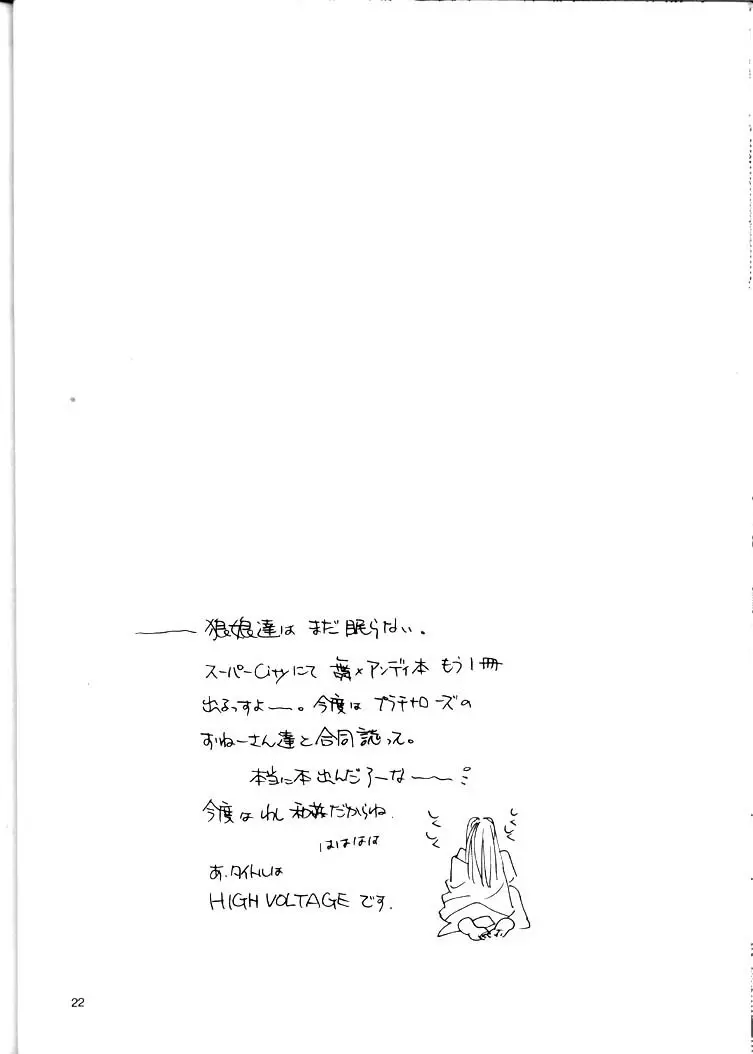 狼娘達は まだ眠らない。
スーパーCityにて ×アンディ本 もう1冊
出るっすよー。今度は プラチナローズの
おねーさん達と合同誌って。
本当に本出んだろーなー
今度は わし だからね.
はははは
あ.タイトルは
HIGH VOLTAGE です.
しくしく
しくしく
22